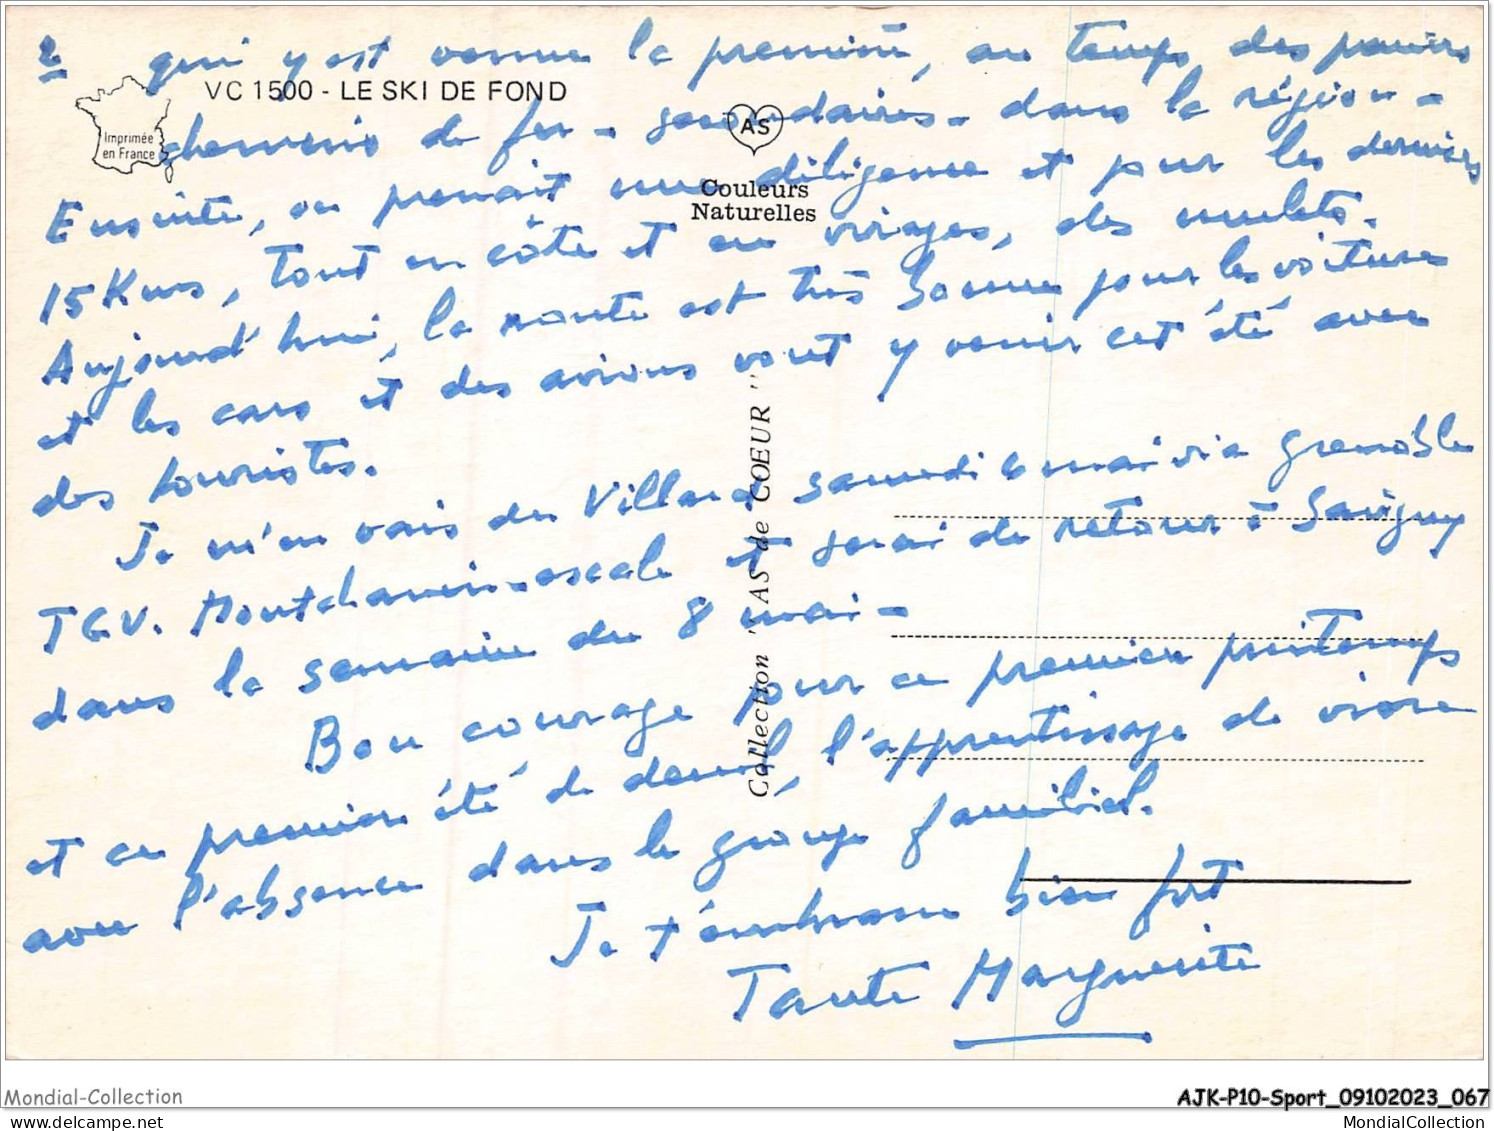 2 qui y est venue la première, au temps des premiers
VC 1500 - LE SKI DE FOND
Imprimée
en France
chemins de fer - secondaires - dans la région -
AS
Couleurs
Naturelles
Ensuite, on prenait une diligence et pour les derniers
15 Kms, tout en côte et en virages, des mulets.
Aujourd'hui, la route est très bonne pour les voitures
et les cars et des avions vont y venir cet été avec
des touristes.
Je m'en vais du Villard samedi 6 mai via Grenoble
TGV. Montchanin-escale et serai de retour à Savigny
dans la semaine du 8 mai -
Bon courage pour ce premier printemps
et ce premier été de deuil, l'apprentissage de vivre
avec l'absence dans le groupe familial.
Je t'embrasse bien fort
Tante Marguerite
Collection " AS de COEUR "
Mondial-Collection
AJK-P10-Sport_09102023_067
mondial-collection.com
MondialCollection